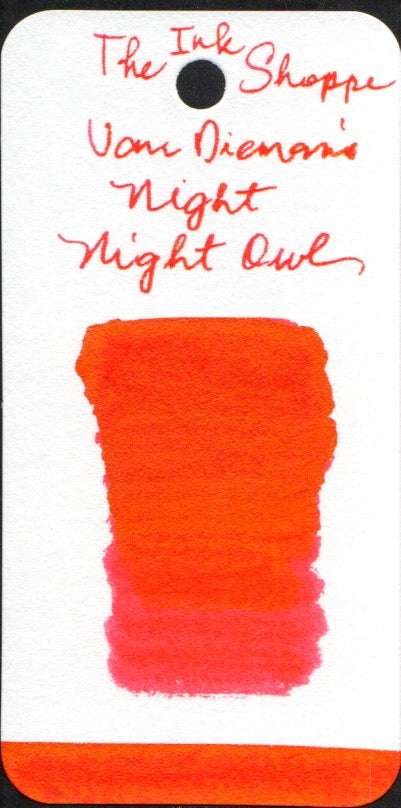 The Ink Shoppe
Van Dieman's
Night
Night Owl